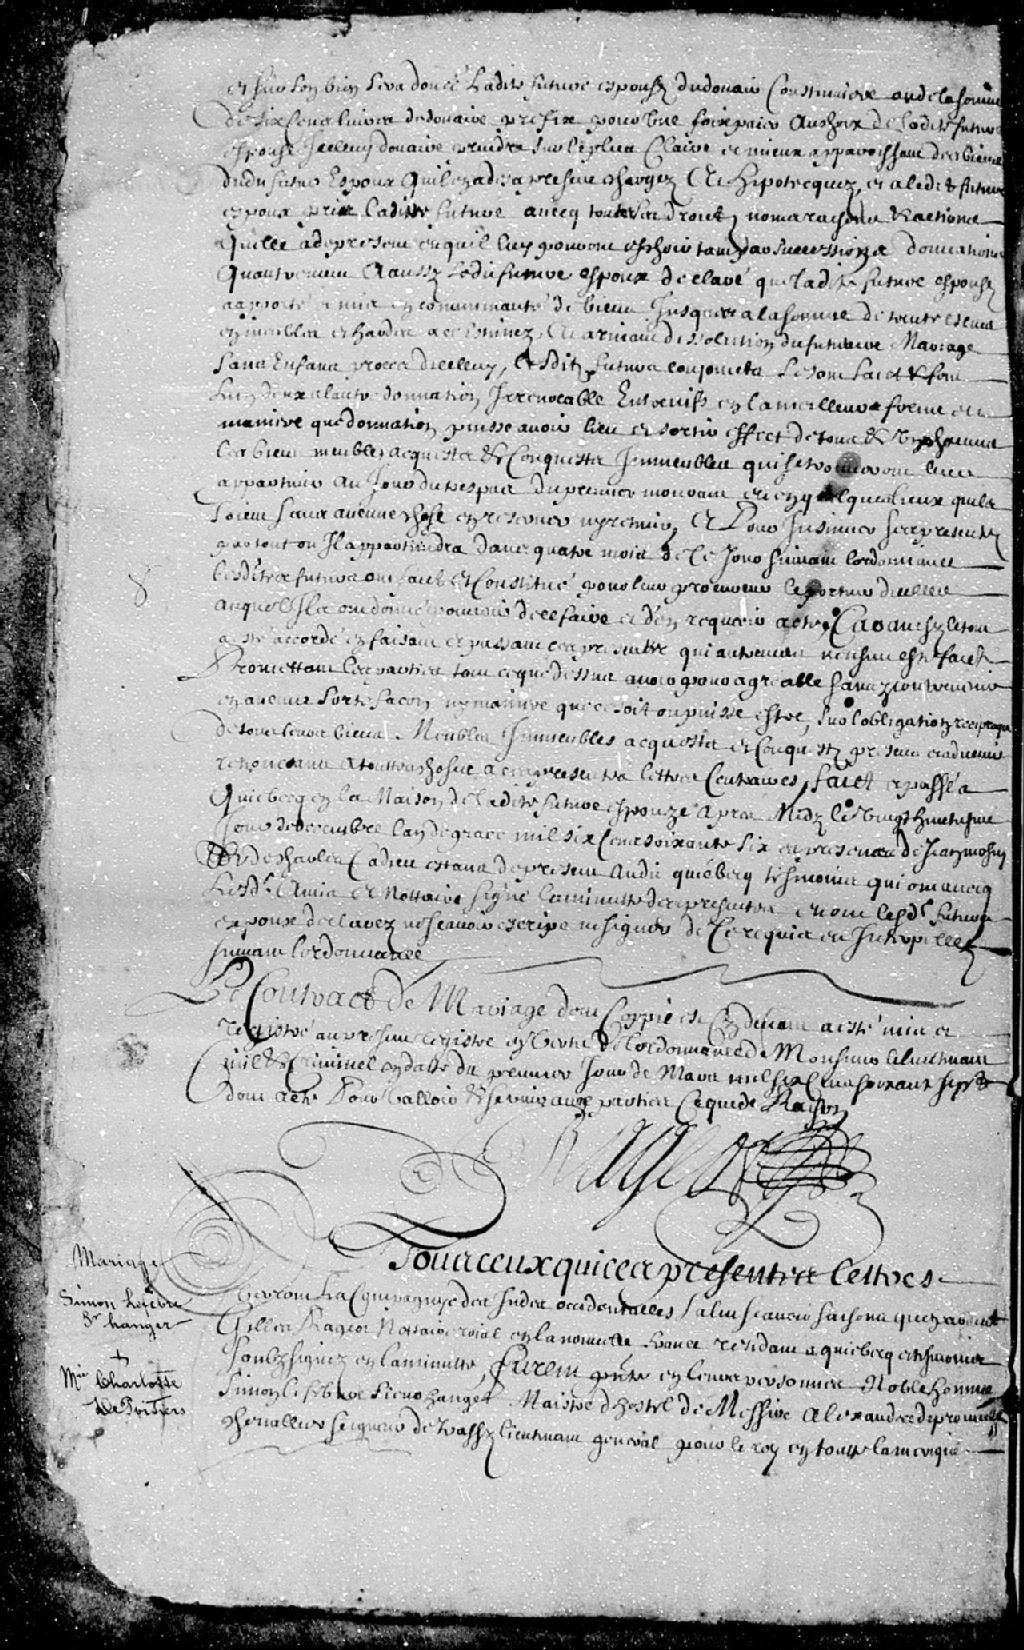 et sur son bien sera doué Ladite future espouse du douaire Coustumiere ou de la somme
de six Cens livres de douaire prefix pour une fois paier Au choix de Ladite future
espouse Icelluy douaire prendre sur le plus Claire et mieux apparoissant des biens
dudit futur Espoux quil en a dès a present chargez & hipotecquez, et a ledit futur
espoux pris Ladite future avecq toutes ses droits, noms raisons & actions
quelle a de present et quil luy pouront eschoir tant par succession donnations
quautrement & aussy Ledit futur espoux declaré que Ladite future espouse
a apporté et mis en communauté de biens Jusques a la somme de trente
en meubles et hardes & arrivant dissolution du futur Mariage
sans Enfans procreez d'iceluy, Lesdits futurs conjoincts se sont faict & font
lun deux a lautre donnation Irrevocable Entrevifs en la meilleure forme et
maniere que donnation puisse avoir lieu et sortir effect de tous & Un chacuns
les biens meubles acquests & Conquests Immeubles qui se trouveront leurs
appartenir Au Jour du trespas du premier mourant et en quelques lieux quils
soient sans aucune chose en reserver ny retenir, Et Pour Insinuer ses presentes
par tout ou Il appartiendra dans quatre mois de Ce Jour suivant lordonnance
lesdites futurs ont faict & Constitué pour leur procureur le porteur dicelles
auquel Ils ont donné pouvoir de ce faire et d'en requerir acte, Car ainsy le tout
a esté accordé en faisant et passant ces presentes qui autrement neussent esté faicts
Promettant Les parties tout ce que dessus avoir pour agreable sans y contrevenir
en aucune sorte facon ny maniere que ce soit ou puisse estre, sur lobligation reciproque
de tous leurs biens Meubles Immeubles acquests et Conquests presens et advenir
renonceans a touttes choses a ces presentes lettres Contraires, faict et passé a
Quiebecq en La Maison de Ladite future espouze Apres Midy Le vingt huictiesme
Jour de decembre Lan de grace mil six Cens soixante six en presence de Jean
& de Charles Cadieu estans de present Audit quiebecq tesmoins qui ont avecq
Lesdts Amis Et Nottaire signé La minutte des presentes et ont lesdts futurs
espoux declarez ne scavoir escripre ne signer de Ce requis et Interpellez
suivant lordonnance
Le Contract de Mariage dont Coppie est Cy devant a esté mise et
registré au present registre en Vertu de Lordonnance de Monsieur le Lieutenant
Civil & Criminel en datte du premier Jour de Mars mil six Cens soixante sept
dont acte Pour Valloir & servir aux parties Ce que de Raison
Rageot
Mariage
Simon Lefebvre
Sr hanger
+
Mrie Charlotte
De Poitiers
A Tous Ceux qui ces presentes Lettres
Verront La Compagnye des Indes occidentalles salut scavoir faisons que pardevant
Gilles Rageot Nottaire roial en la nouvelle France residant a quiebecq et tesmoins
soubzsignez en la minutte, furent pnts en leurs personnes Noble homme
Simon Lefebvre Sieur hanger Maistre dhostel de Messire Alexandre de prouville
chevallier seigneur de trassy lieutenant general pour le roy en toute Lamerique